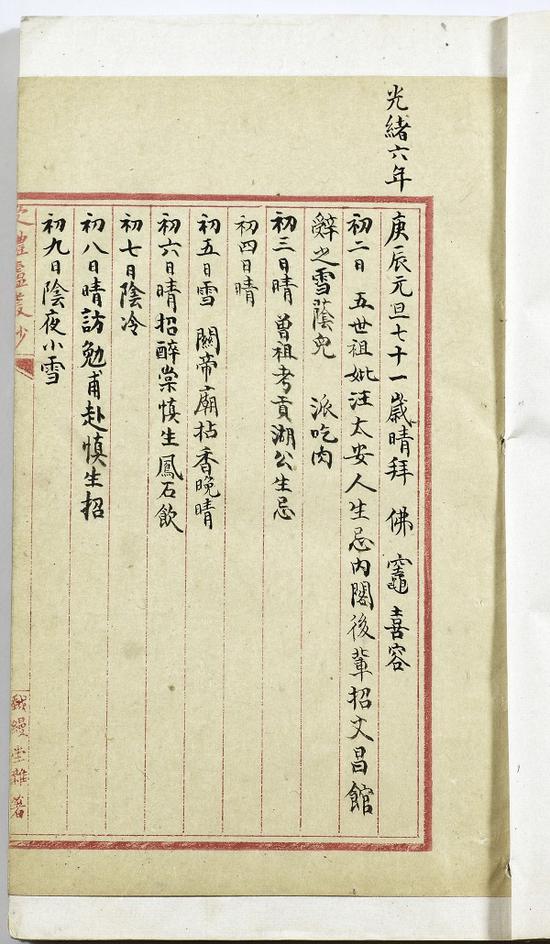 光緒六年
庚辰元旦七十一歲晴拜 佛 竈 喜容
初二日 五世祖妣汪太安人生忌內閣後輩招文昌館
辭之雪蔭兒 派吃肉
初三日晴 曾祖考貢湖公生忌
初四日晴
初五日雪 關帝廟拈香晚晴
初六日晴招醉棠慎生鳳石飲
初七日陰冷
初八日晴訪勉甫赴慎生招
初九日陰夜小雪
受禮廬叢鈔
縵堂雜著